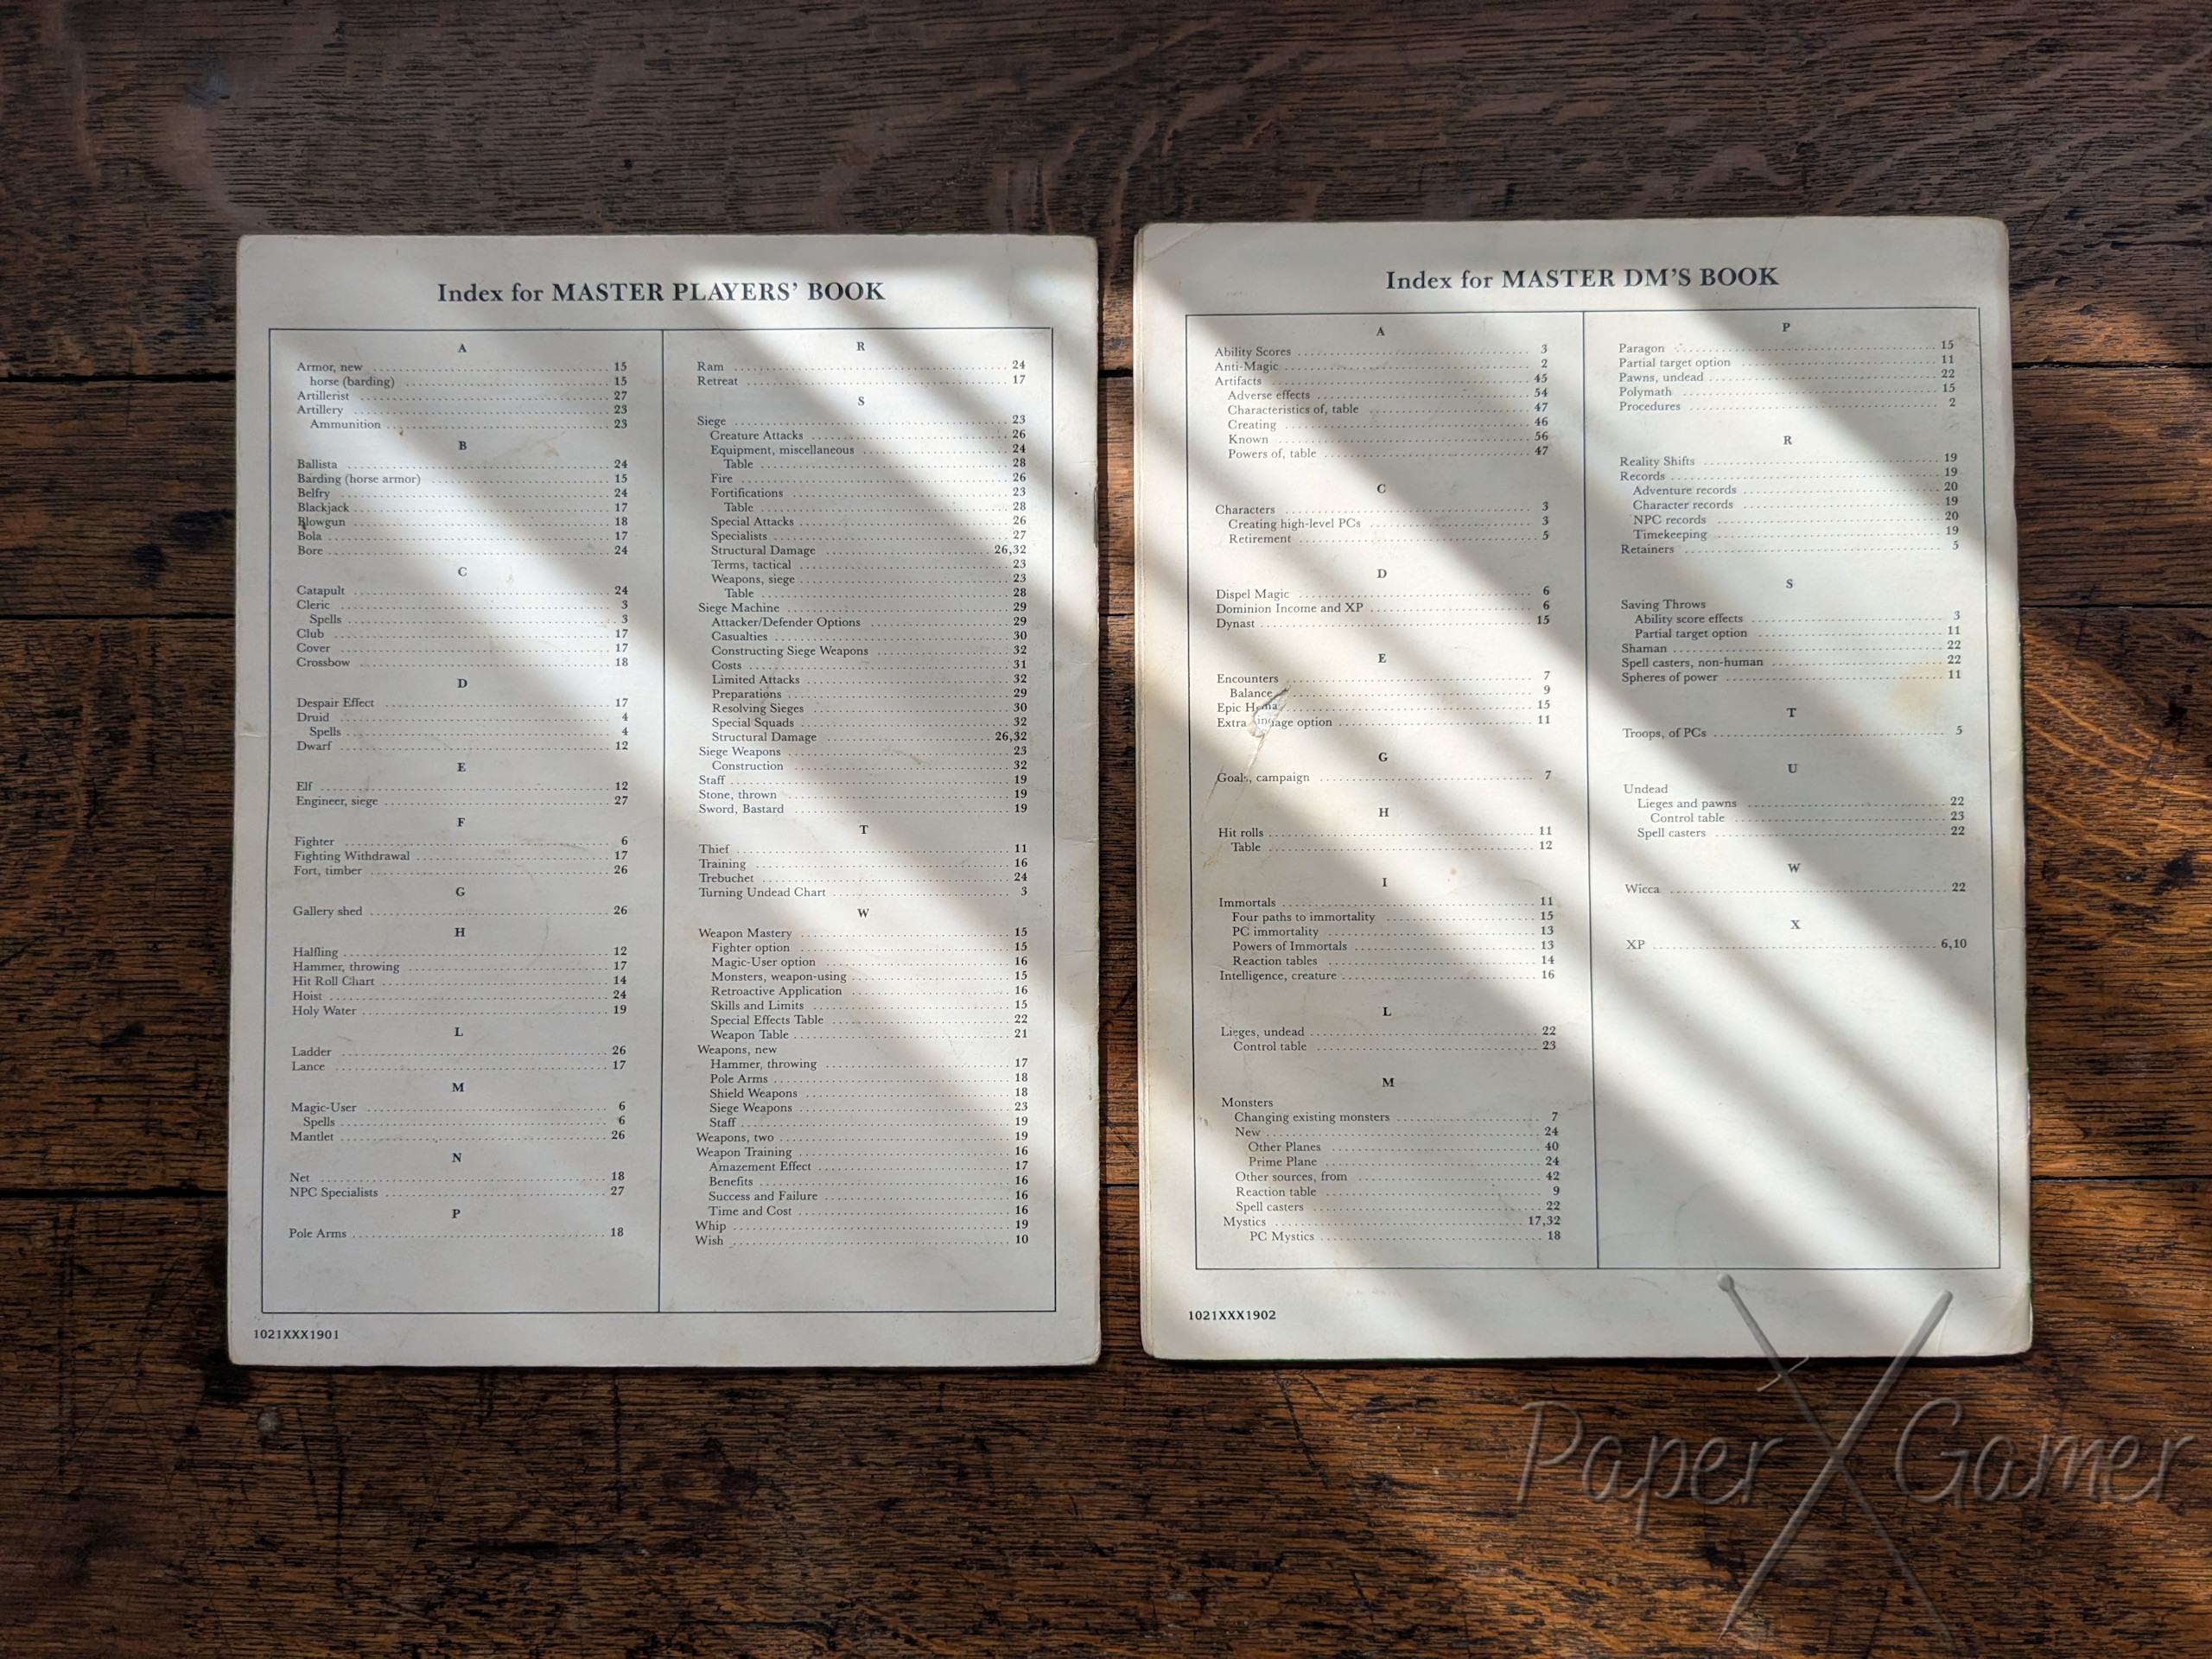 Index for MASTER PLAYERS' BOOK
A
Armor, new 15
horse (barding) 15
Artillerist 27
Artillery 23
Ammunition 23
B
Ballista 24
Barding (horse armor) 15
Belfry 24
Blackjack 17
Blowgun 18
Bola 17
Bore 24
C
Catapult 24
Cleric 3
Spells 3
Club 17
Cover 17
Crossbow 18
D
Despair Effect 17
Druid 4
Spells 4
Dwarf 12
E
Elf 12
Engineer, siege 27
F
Fighter 6
Fighting Withdrawal 17
Fort, timber 26
G
Gallery shed 26
H
Halfling 12
Hammer, throwing 17
Hit Roll Chart 14
Hoist 24
Holy Water 19
L
Ladder 26
Lance 17
M
Magic-User 6
Spells 6
Mantlet 26
N
Net 18
NPC Specialists 27
P
Pole Arms 18
R
Ram 24
Retreat 17
S
Siege 23
Creature Attacks 26
Equipment, miscellaneous 24
Table 28
Fire 26
Fortifications 23
Table 28
Special Attacks 26
Specialists 27
Structural Damage 26,32
Terms, tactical 23
Weapons, siege 23
Table 28
Siege Machine 29
Attacker/Defender Options 29
Casualties 30
Constructing Siege Weapons 32
Costs 31
Limited Attacks 32
Preparations 29
Resolving Sieges 30
Special Squads 32
Structural Damage 26,32
Siege Weapons 23
Construction 32
Staff 19
Stone, thrown 19
Sword, Bastard 19
T
Thief 11
Training 16
Trebuchet 24
Turning Undead Chart 3
W
Weapon Mastery 15
Fighter option 15
Magic-User option 16
Monsters, weapon-using 15
Retroactive Application 16
Skills and Limits 15
Special Effects Table 22
Weapon Table 21
Weapons, new
Hammer, throwing 17
Pole Arms 18
Shield Weapons 18
Siege Weapons 23
Staff 19
Weapons, two 19
Weapon Training 16
Amazement Effect 17
Benefits 16
Success and Failure 16
Time and Cost 16
Whip 19
Wish 10
1021XXX1901
Index for MASTER DM'S BOOK
A
Ability Scores 3
Anti-Magic 2
Artifacts 45
Adverse effects 54
Characteristics of, table 47
Creating 46
Known 56
Powers of, table 47
C
Characters 3
Creating high-level PCs 3
Retirement 5
D
Dispel Magic 6
Dominion Income and XP 6
Dynast 15
E
Encounters 7
Balance 9
Epic 15
Extra option 11
G
Goals, campaign 7
H
Hit rolls 11
Table 12
I
Immortals 11
Four paths to immortality 15
PC immortality 13
Powers of Immortals 13
Reaction tables 14
Intelligence, creature 16
L
Lieges, undead 22
Control table 23
M
Monsters
Changing existing monsters 7
New 24
Other Planes 40
Prime Plane 24
Other sources, from 42
Reaction table 9
Spell casters 22
Mystics 17,32
PC Mystics 18
P
Paragon 15
Partial target option 11
Pawns, undead 22
Polymath 15
Procedures 2
R
Reality Shifts 19
Records 19
Adventure records 20
Character records 19
NPC records 20
Timekeeping 19
Retainers 5
S
Saving Throws
Ability score effects 3
Partial target option 11
Shaman 22
Spell casters, non-human 22
Spheres of power 11
T
Troops, of PCs 5
U
Undead
Lieges and pawns 22
Control table 23
Spell casters 22
W
Wicca 22
X
XP 6,10
1021XXX1902
Paper X Gamer